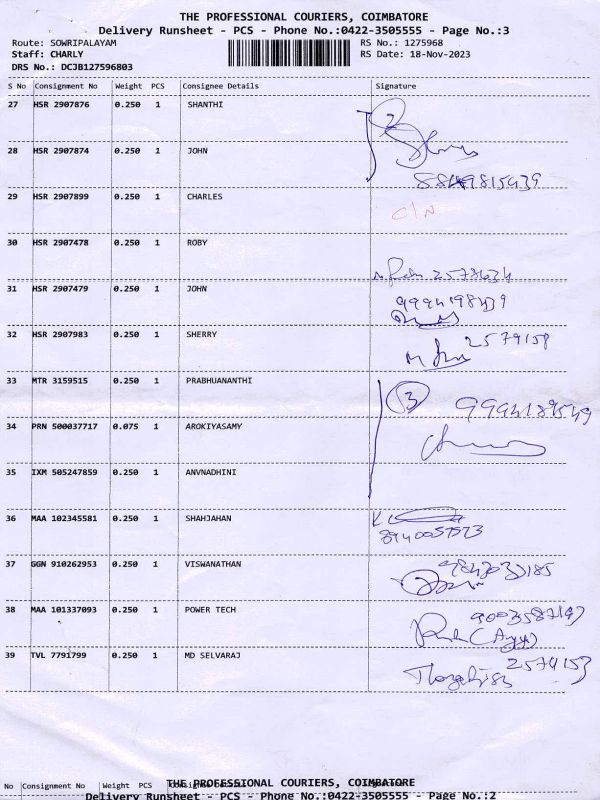 THE PROFESSIONAL COURIERS, COIMBATORE
Delivery Runsheet - PCS - Phone No.:0422-3505555 - Page No.:3
Route: SOWRIPALAYAM RS No.: 1275968
Staff: CHARLY RS Date: 18-Nov-2023
DRS No.: DCJB127596803
S No Consignment No Weight PCS Consignee Details Signature
27 HSR 2907876 0.250 1 SHANTHI 2
28 HSR 2907874 0.250 1 JOHN
29 HSR 2907899 0.250 1 CHARLES C/N
30 HSR 2907478 0.250 1 ROBY
31 HSR 2907479 0.250 1 JOHN 9994198439
32 HSR 2907983 0.250 1 SHERRY 2579158
33 MTR 3159515 0.250 1 PRABHUANANTHI 3
34 PRN 500037717 0.075 1 AROKIYASAMY
35 IXM 505247859 0.250 1 ANVNADHINI
36 MAA 102345581 0.250 1 SHAHJAHAN
37 GGN 910262953 0.250 1 VISWANATHAN
38 MAA 101337093 0.250 1 POWER TECH
39 TVL 7791799 0.250 1 MD SELVARAJ 2574153
THE PROFESSIONAL COURIERS, COIMBATORE
No Consignment No Weight PCS
Delivery Runsheet - PCS - Phone No.:0422-3505555 - Page No.:2